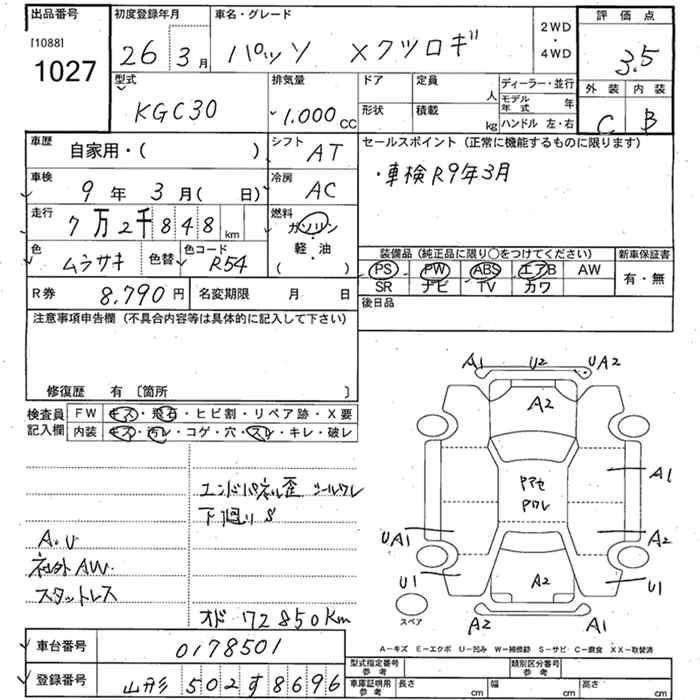 出品番号
[1088]
1027
初度登録年月
26年3月
車名・グレード
パッソ Xクツロギ
2WD
・
4WD
評価点
3.5
外装 内装
C B
型式
KGC30
排気量
1.000cc
ドア 定員 人
形状 積載 kg
ディーラー・並行
モデル年式 年
ハンドル 左・右
車歴
自家用・( )
シフト
AT
セールスポイント(正常に機能するものに限ります)
・車検R9年3月
車検
9年 3月( 日)
冷房
AC
走行
7万2千848km
燃料
ガソリン
・
軽・油
( )
色
ムラサキ
色替
色コード
R54
装備品(純正品に限り○をつけてください)
PS PW ABS エアB AW
SR ナビ TV カワ
新車保証書
有・無
R券 8,790円
名変期限 月 日
後日品
注意事項申告欄(不具合内容等は具体的に記入して下さい)
修復歴 有〔箇所 〕
検査員記入欄
FW キズ・飛石・ヒビ割・リペア跡・X要
内装 キズ・汚レ・コゲ・穴・スレ・キレ・破レ
エンドパネル歪 シールワレ
下廻りS
A.U
社外AW.
スタットレス
オド 72850Km
A1 U2 UA2
A2
Pアセ
Pワレ
A1
UA1 A2
U1 A2 U1
スペア
A2 A1
A-キズ E-エクボ U-凹み W-補修跡 S-サビ C-腐食 XX-取替済
車台番号 0178501
登録番号 山形502す8696
型式指定番号 参考
類別区分番号 参考
車庫証明用 参考
長さ cm 幅 cm 高さ cm